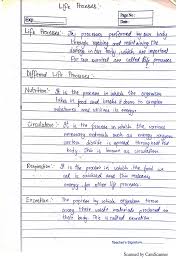 Life Proceses:-
Exp.
Page No:
Date:
Life Processes:- The processes performed by our body
through repairing and maintaining the
in our body which are important
for our survival are called life process
Different Life Processes:-
Nutrition:- It is the process in which the organism
takes in food and breaks it down to complex
substances, and utilises in energy.
Circulation:- It is the process in which the various
necessary materials such as energy oxygen
carbon dioxide is spread throughout the
body. This is known as circulation.
Respiration:- It is the process in which the food we
eat is oxidised and this releases
energy for other life processes.
Excretion:- The process by which organism throw
away their waste materials produced in
their body. This is called excretion.
Teacher's Signature
Scanned by CamScanner